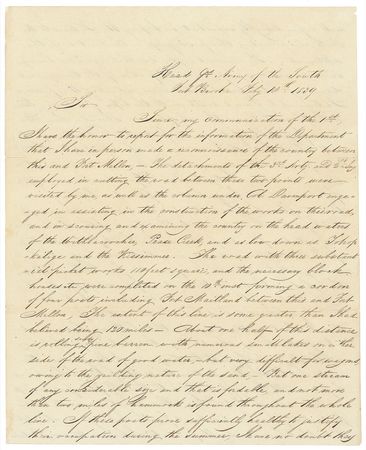 Head Qrs Army of the South
Feby 10th 1839
Sir
Since my communication of the 1st,
I have the honor to report for the information of the Department
that I have in person made a reconnoissance of the country between
this and Fort Mellon, – The detachments of the 3d Arty and 2d Inf
employed in cutting the road between these two points were
visited by me, as well as the column under Col Davenport enga-
ged in assisting in the construction of the works on this road,
and in scouring and examining the country on the head waters
of the Withlacoochee, Pease Creek, and as low down as Tohop-
kaliga and the Kissimmee. The road with three substant-
ial picket works 110 feet square, and the necessary block
houses &c were completed on the 10th inst forming a cordon
of four posts including Fort Maitland between this and Fort
Mellon. The extent of this line is some greater than I had
believed being 120 miles – About one half of this distance
is rolling pine barren with numerous small lakes on either
side of the road of good water, but very difficult for wagons
owing to the yielding nature of the sand. But one stream
of any considerable size and that is fordable, and not more
than two miles of Hammock is found throughout the whole
line. If these posts prove sufficiently healthy to justify
their occupation during the summer, I have no doubt they